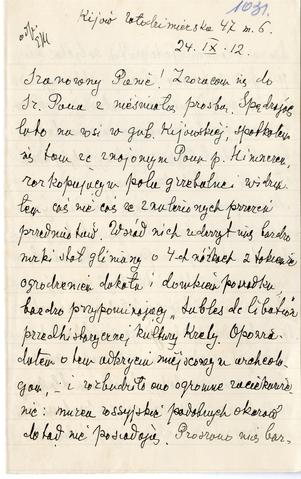 1031.
Kijów Włodzimierska 47 m. 6.
24. IX. 12.
Szanowny Panie! Zwracam się do
Sz. Pana z nieśmiałą prośbą. Spędzając
lato na wsi w gub. Kijowskiej, spotkałem
się tam ze znajomym Panu p. Himnerem,
rozkopującym pola grzebalne i widzia
łem coś nie coś ze znalezionych przezeń
przedmiotów. Wśród nich uderzył nas bardzo
niski stół gliniany o 4-ch nóżkach z
ogrodzeniem dokoła i
bardzo przypominający „tables de libation"
przedhistorycznej kultury Krety. Opowia
dałem o tem odkryciu miejscowym archeolo
gom, – i rozbudziło ono ogromne zaciekawie
nie: muzea rossyjskie podobnych okazów
dotąd nie posiadają. Proszono mię bar-